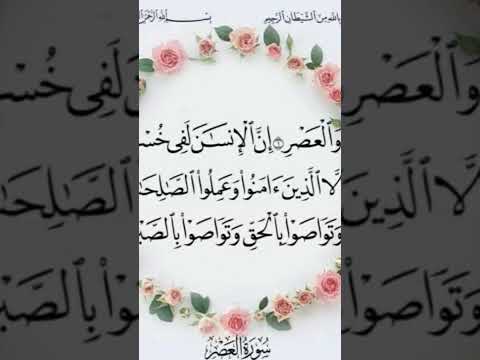 بِاللهِ مِنَ الشَّيْطَانِ الرَّجِيمِ بِسْمِ اللهِ الرَّحْمَنِ
وَٱلْعَصْرِ ۝١ إِنَّ ٱلْإِنسَـٰنَ لَفِى خُسْ
لَّا ٱلَّذِينَ ءَامَنُوا۟ وَعَمِلُوا۟ ٱلصَّـٰلِحَا
وَتَوَاصَوْا۟ بِٱلْحَقِّ وَتَوَاصَوْا۟ بِٱلصَّبْ
سُورَةُ الْعَصْرِ